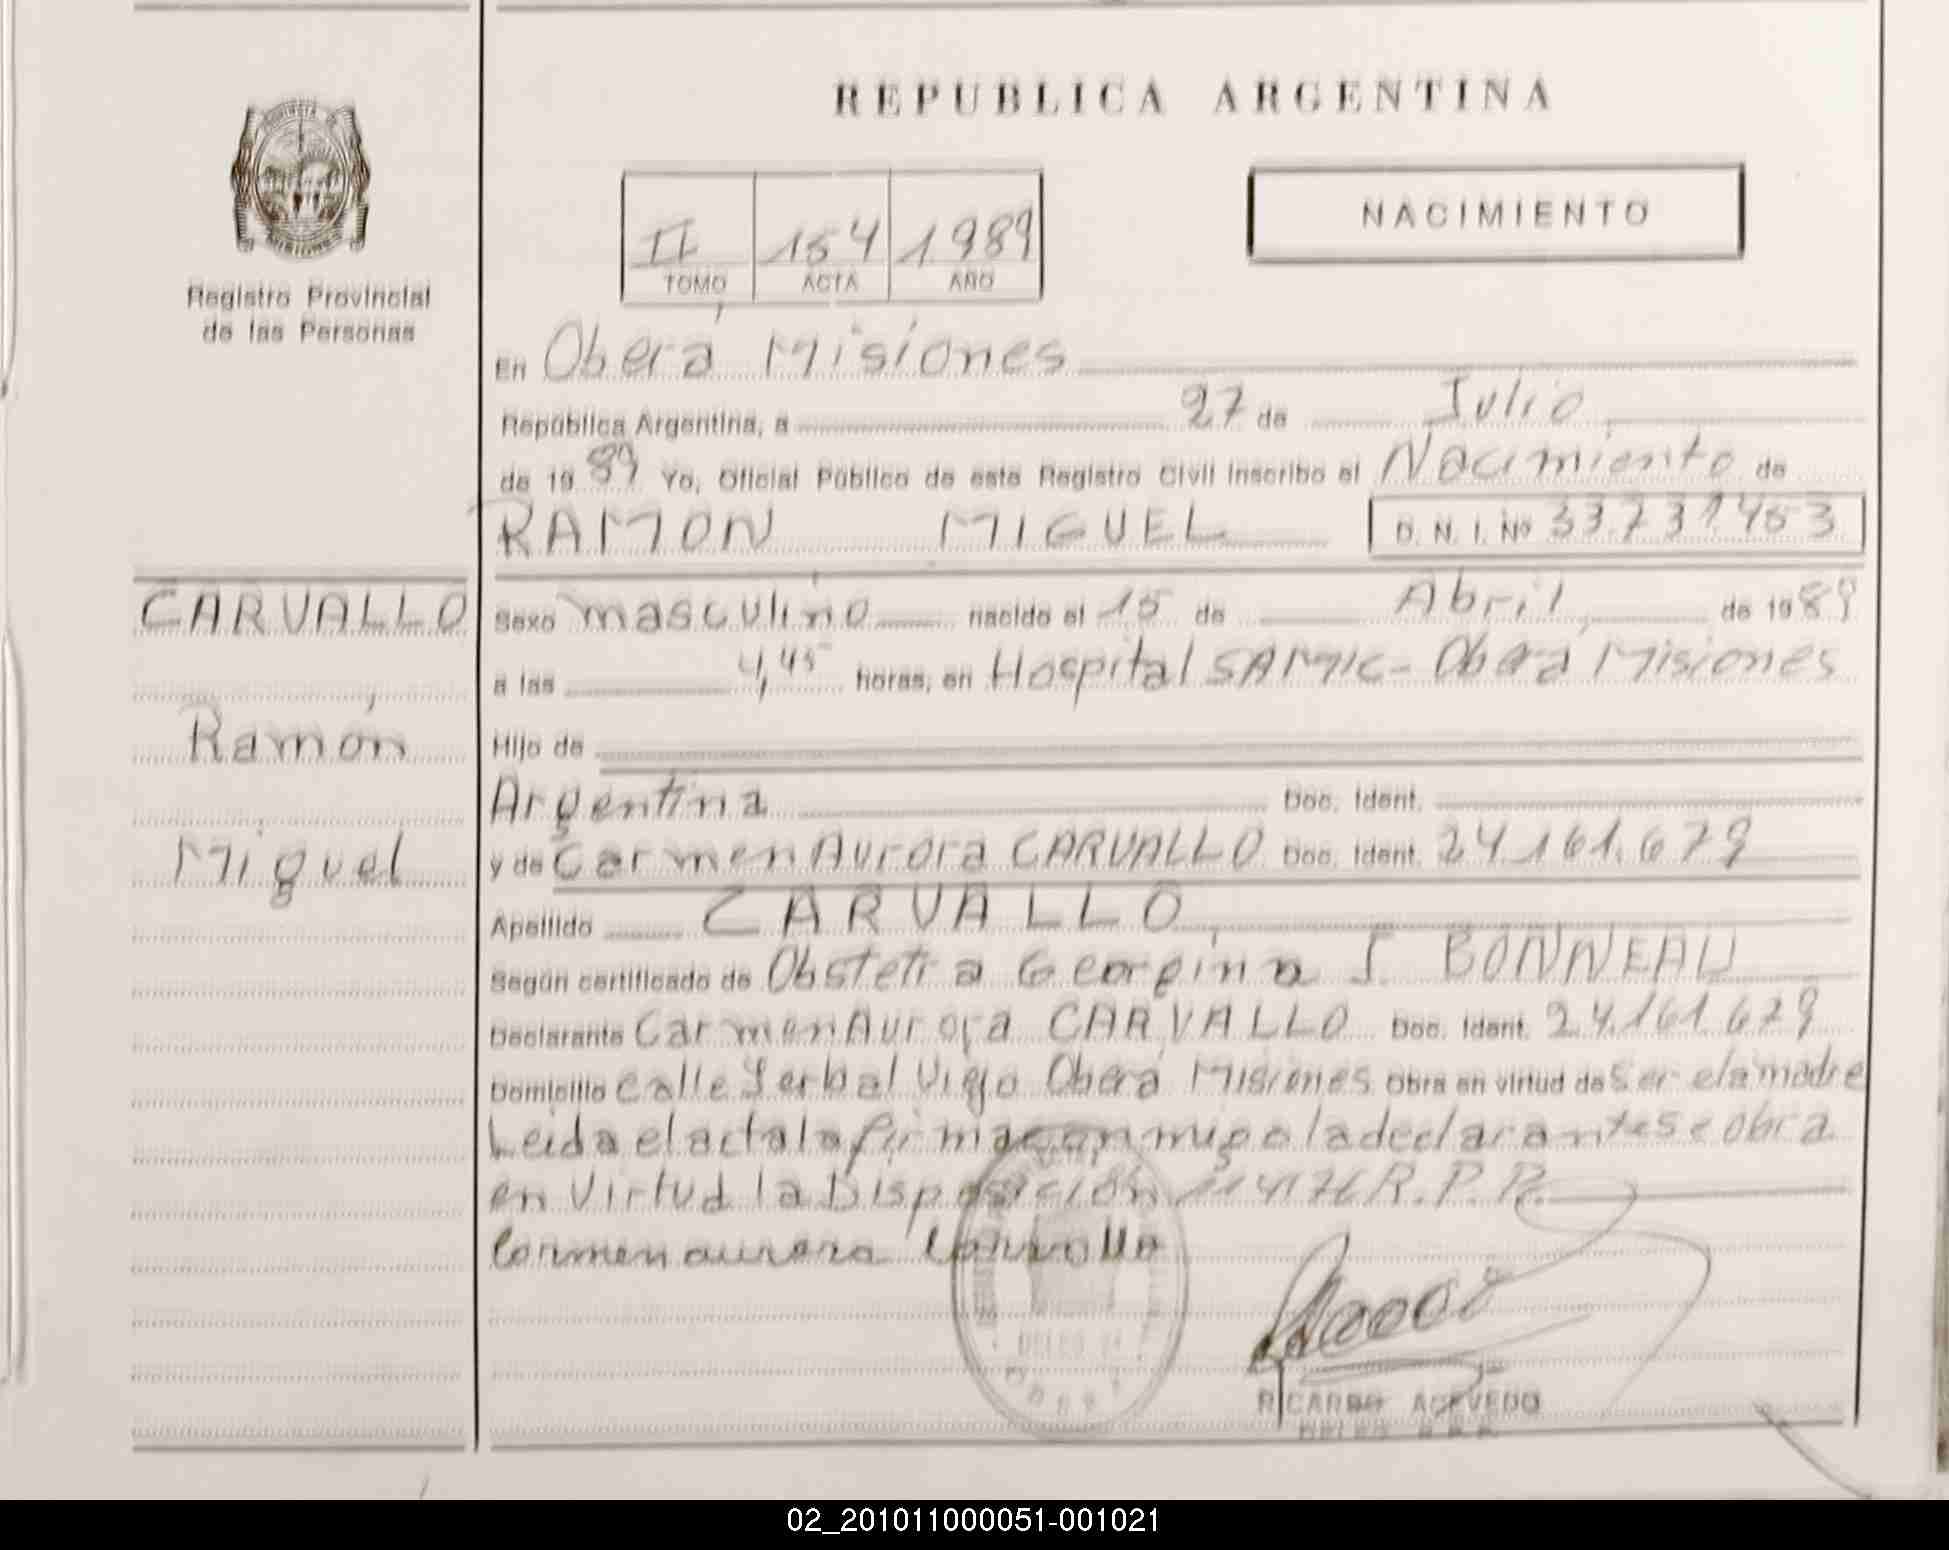 REPUBLICA ARGENTINA
NACIMIENTO
II 154 1989
TOMO ACTA AÑO
Registro Provincial
de las Personas
En Oberá Misiones
República Argentina, a 27 de Julio
de 1989 Yo, Oficial Público de este Registro Civil inscribo el Nacimiento de
RAMÓN MIGUEL D. N. I. Nº 33.731.453
CARVALLO
Ramón
Miguel
Sexo masculino nacido el 15 de Abril de 1989
a las 4,45 horas, en Hospital SAMIC - Oberá Misiones
Hijo de
Argentina Doc. Ident.
y de Carmen Aurora CARVALLO Doc. Ident. 24.161.679
Apellido CARVALLO
Según certificado de Obstetra Georgina J. BONNEAU
Declarante Carmen Aurora CARVALLO Doc. Ident. 24.161.679
Domicilio Calle Yerbal Viejo Oberá Misiones Obra en virtud de ser ela madre
Leida el acta la firma conmigo la declarante se obra
en Virtud la Disposición R.P.P.
Carmen aurora Carvallo
RICARDO ACEVEDO
02_201011000051-001021